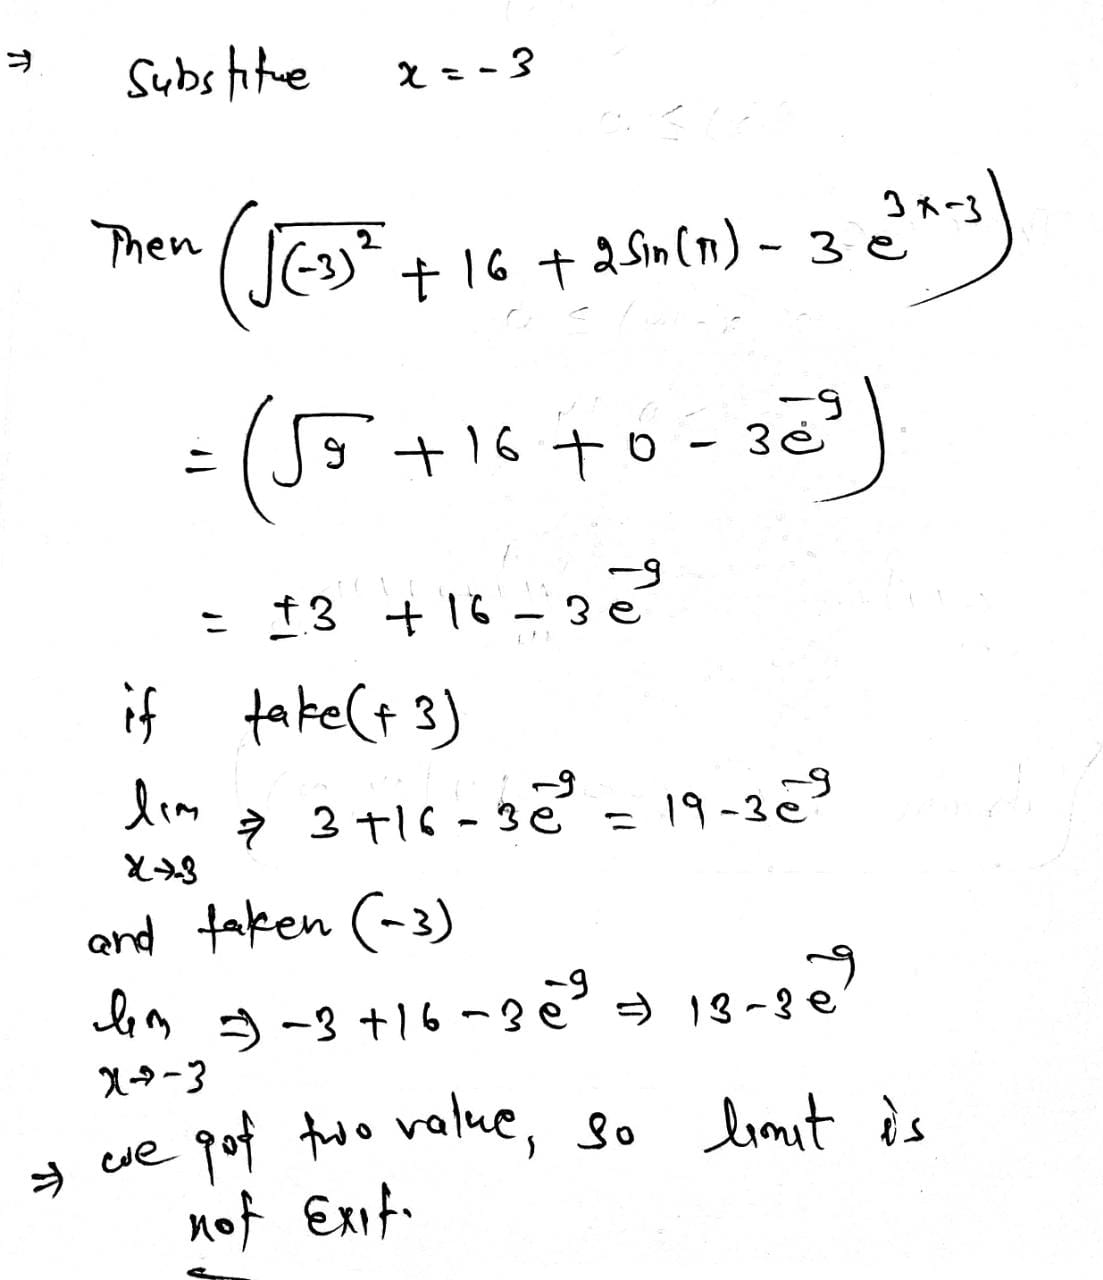 ⇒ Substitue x = -3
Then (√(-3)² + 16 + 2 Sin(π) - 3 e^{3×-3})
= (√9 + 16 + 0 - 3e^{-9})
= ±3 + 16 - 3e^{-9}
if take(+3)
lim ⇒ 3+16 - 3e^{-9} = 19-3e^{-9}
x→-3
and taken (-3)
lim ⇒ -3+16-3e^{-9} ⇒ 13-3e^{-9}
x→-3
⇒ we got two value, so limit is
not Exit.